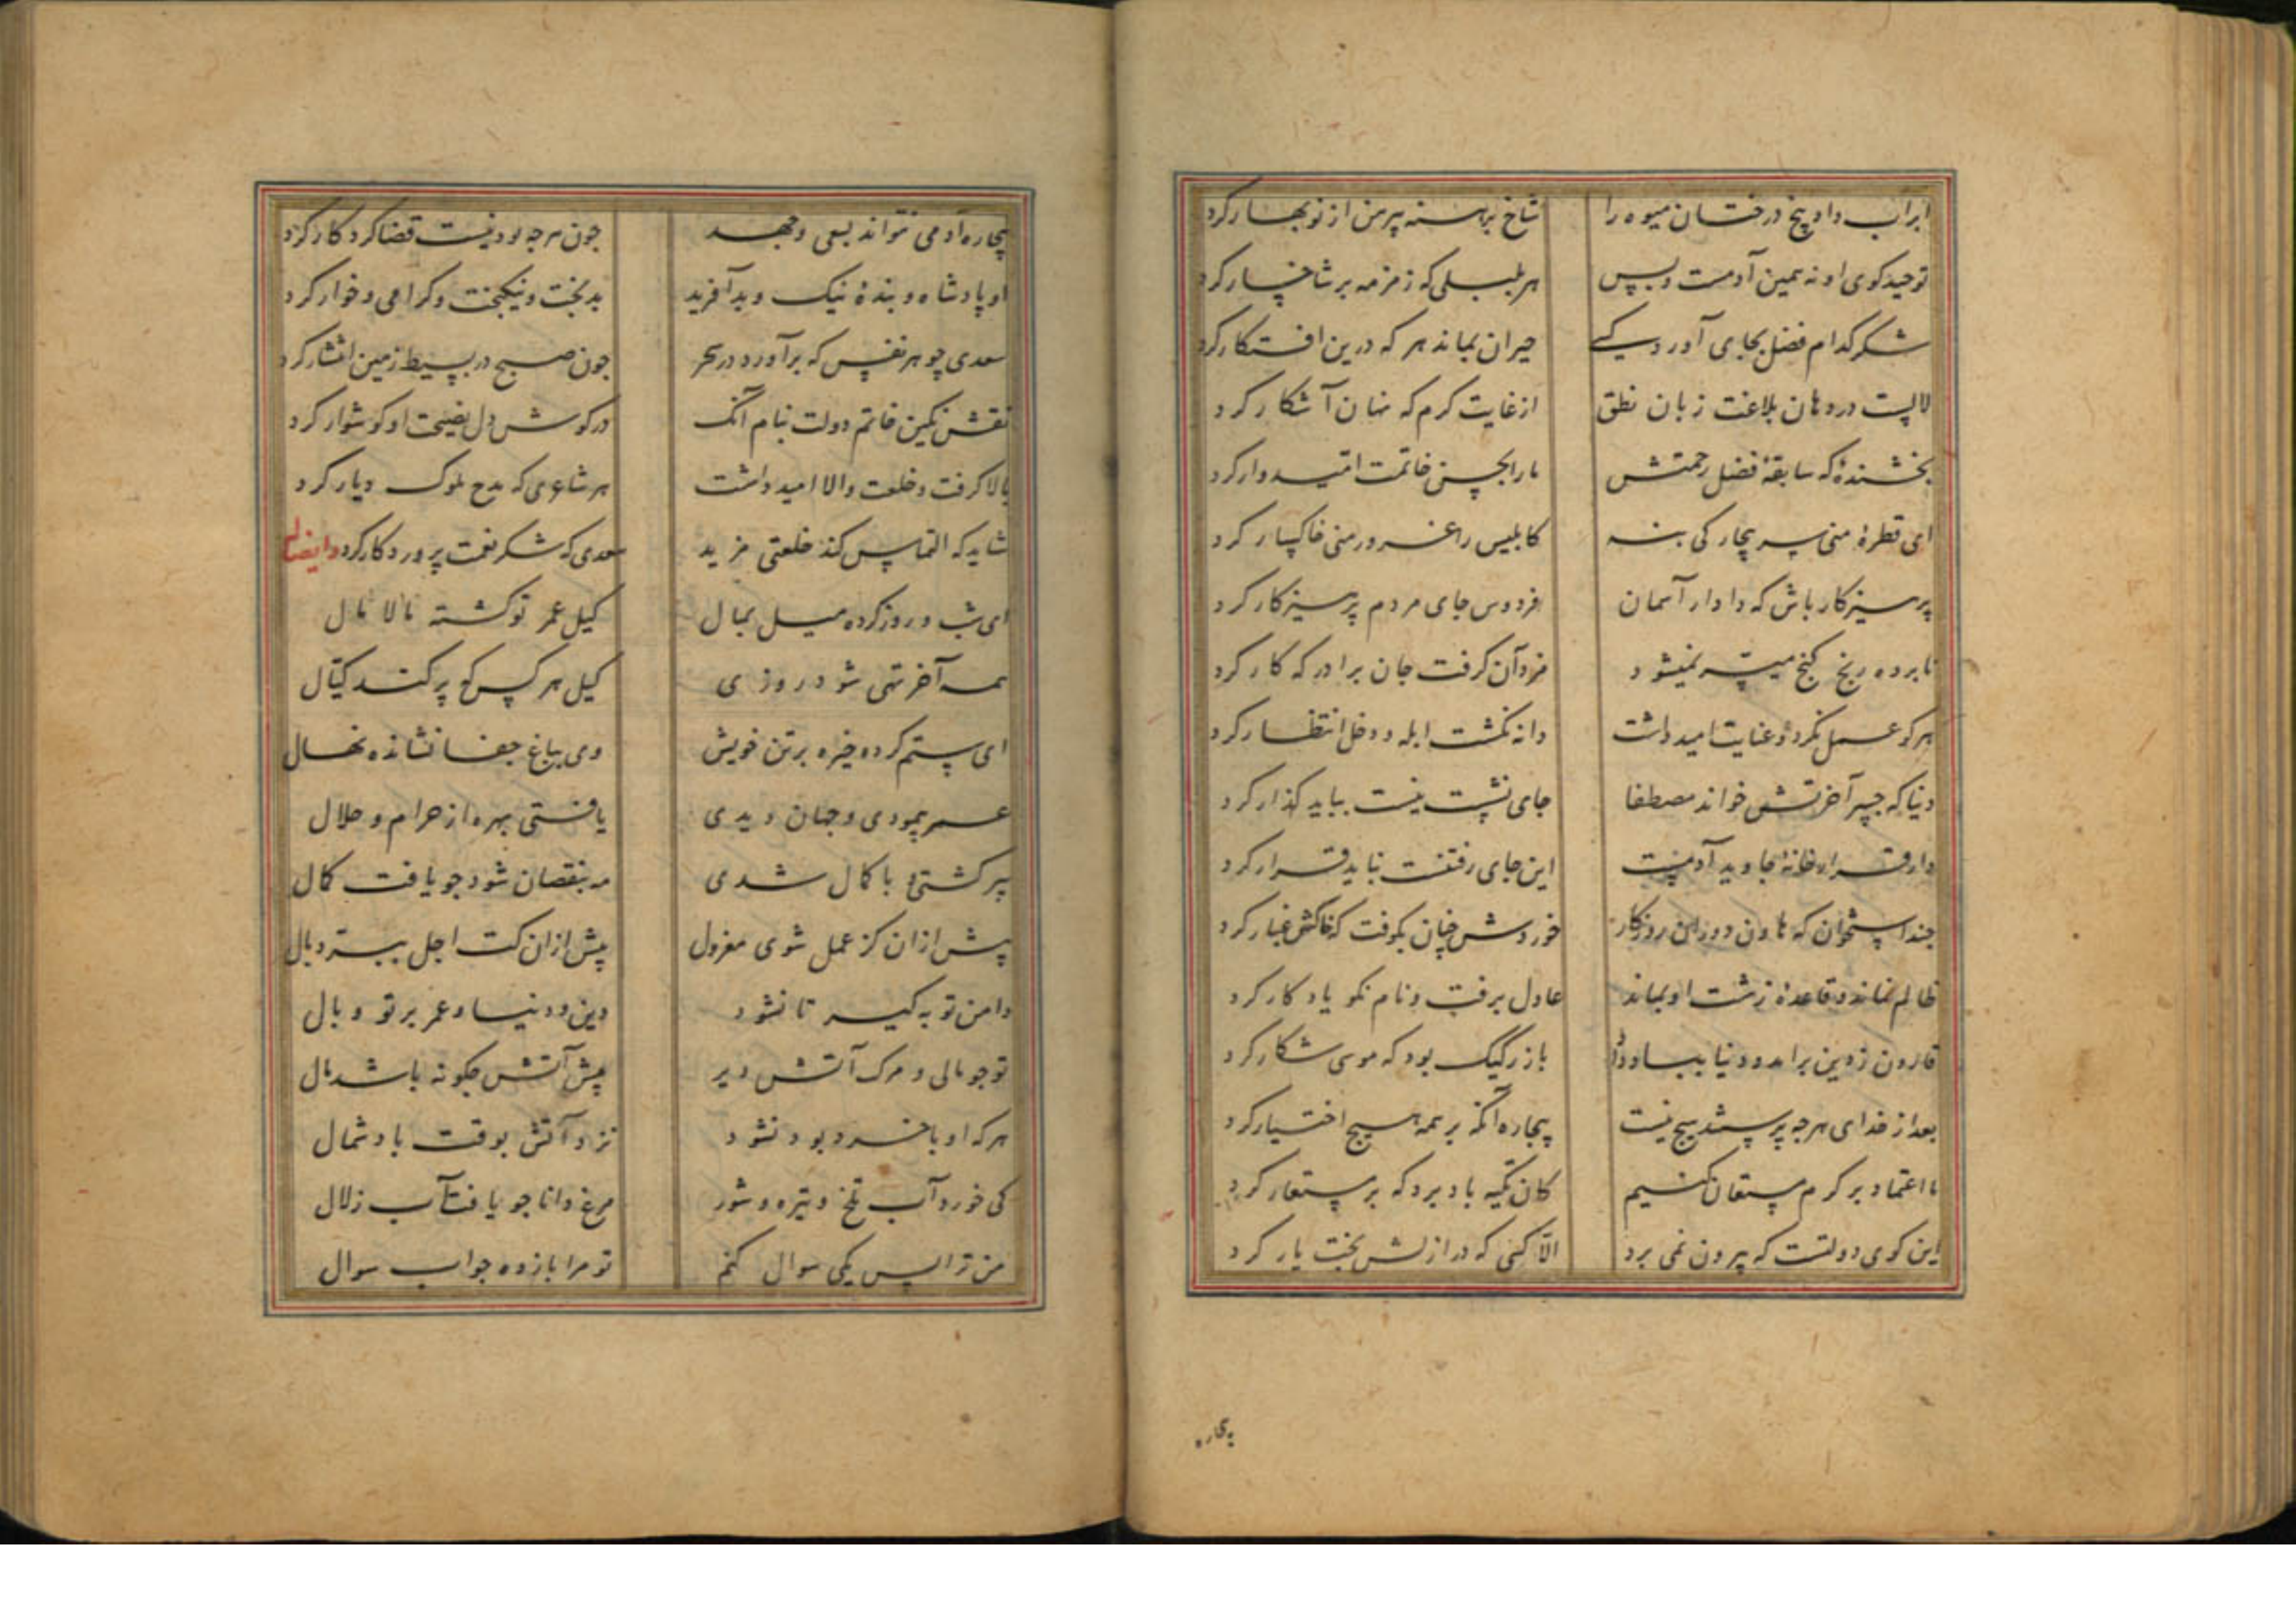 ابر آب داد بیخ درختان میوه را
شاخ برهنه پیرهن از نوبهار کرد
توحید کوی او نه همین آدمست و بس
هر بلبلی که زمزمه بر شاخسار کرد
شکر کدام فضل بجای آورد کسی
حیران بماند هر که درین افتکار کرد
لالست در دهان بلاغت زبان نطق
از غایت کرم که نهان آشکار کرد
بخشندهٔ که سابقهٔ فضل رحمتش
ما را بحسن خاتمت امیدوار کرد
ای قطرهٔ منی سر بیچارکی بنه
کابلیس را غرور منی خاکسار کرد
پرهیزکار باش که دادار آسمان
فردوس جای مردم پرهیزکار کرد
نابرده رنج کنج میسر نمیشود
مزد آن کرفت جان برادر که کار کرد
هر کو عمل نکرد و عنایت امید داشت
دانه نکشت ابله و دخل انتظار کرد
دنیا که جسر آخرتش خواند مصطفا
جای نشست نیست بباید کذار کرد
دار قرار خانهٔ جاوید آدمیست
این جای رفتنست نباید قرار کرد
چند استخوان که هاون دوران روزکار
خوردش چنان بکوفت که خاکش غبار کرد
ظالم نماند و قاعدهٔ زشت او بماند
عادل برفت و نام نکو یادکار کرد
قارون ز دین برآمد و دنیا بباد داد
بازی رکیک بود که موسی شکار کرد
بعد از خدای هرچه پرستند هیچ نیست
بیچاره آنکه بر همه هیچ اختیار کرد
ما اعتماد بر کرم مستعان کنیم
کان تکیه باد برد که بر مستعار کرد
این کوی دولتست که بیرون نمی برد
الّا کسی که در ازلش بخت یار کرد
بیچاره
بیچاره آدمی نتواند بسعی و جهد
چون هرچه بودنیست قضا کردکار کرد
او پادشاه و بندهٔ نیک و بد آفرید
بدبخت و نیکبخت و کرامی و خوار کرد
سعدی چو هر نفس که برآورد در سحر
چون صبح در بسیط زمین انتشار کرد
نقش نکین خاتم دولت بنام آنک
در کوش دل نصیحت او کوشوار کرد
بالا کرفت و خلعت والا امید داشت
هر شاعری که مدح ملوک دیار کرد
شاید که التماس کند خلعتی مزید
سعدی که شکر نعمت پروردکار کرد وایضاله
ای شب و روز کرده میل بمال
کیل عمر تو کشته مالامال
همه آخر تهی شود روزی
کیل هر کس که پر کند کیّال
ای ستم کرده خیره بر تن خویش
وی بباغ جفا نشانده نهال
عمر پیمودی و جهان دیدی
یافتی بهره از حرام و حلال
پیر کشتی و با کمال شدی
مه بنقصان شود چو یافت کمال
پیش از ان کز عمل شوی معزول
پیش از ان کت اجل ببرد بال
دامن توبه کیر تا نشود
دین و دنیا و عمر بر تو وبال
تو چو مالی و مرک آتش دیر
پیش آتش چکونه باشد مال
هر که او با خرد بود نشود
نزد آتش بوقت باد شمال
کی خورد آب تلخ و تیره و شور
مرغ دانا چو یافت آب زلال
من ترا بس یکی سوال کنم
تو مرا باز ده جواب سوال